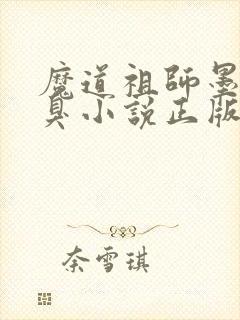 魔道祖師墨
臭小說正版
奈雪琪